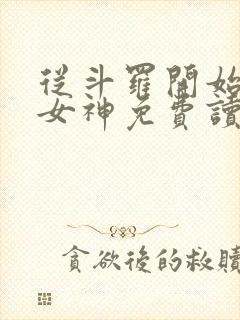 從斗羅開始
女神免費讀
貪欲後的救贖